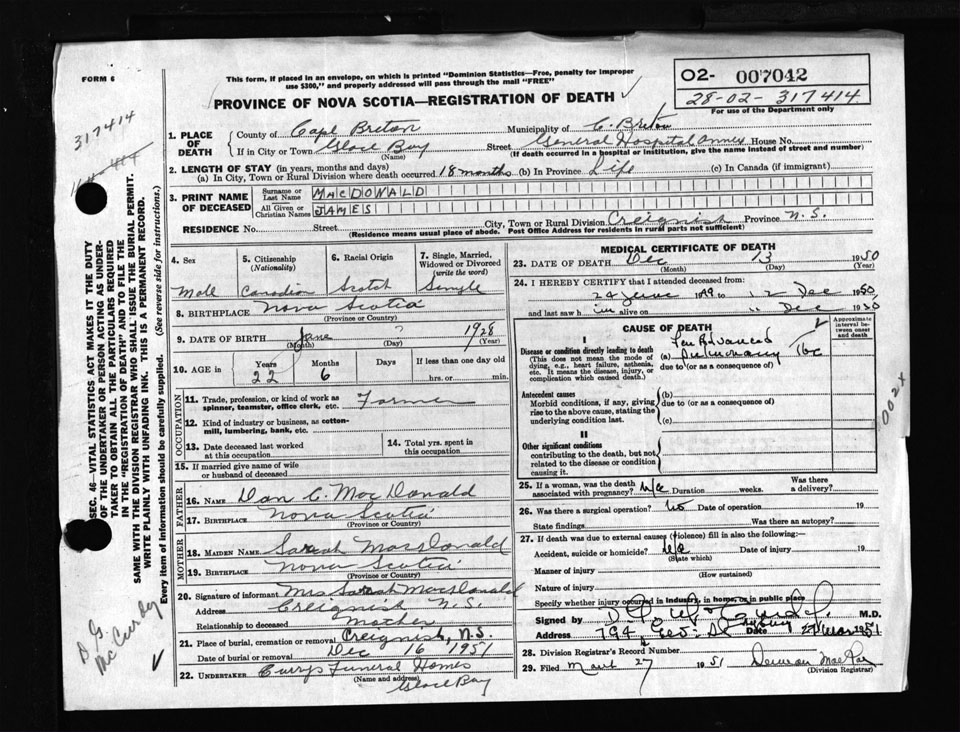 FORM 6
This form, if placed in an envelope, on which is printed "Dominion Statistics—Free, penalty for improper
use $300," and properly addressed will pass through the mail "FREE"
PROVINCE OF NOVA SCOTIA—REGISTRATION OF DEATH
02- 007042
28-02-317414
For use of the Department only
317414
1. PLACE OF DEATH
County of Cape Breton Municipality of C. Breton
If in City or Town Glace Bay Street General Hospital Annex House No.
(Name) (If death occurred in a hospital or institution, give the name instead of street and number)
2. LENGTH OF STAY (in years, months and days)
(a) In City, Town or Rural Division where death occurred 18 months (b) In Province Life (c) In Canada (if immigrant)
3. PRINT NAME OF DECEASED
Surname or Last Name MACDONALD
All Given or Christian Names JAMES
RESIDENCE No. Street City, Town or Rural Division Creignish Province N.S.
(Residence means usual place of abode. Post Office Address for residents in rural parts not sufficient)
4. Sex
Male
5. Citizenship (Nationality)
Canadian
6. Racial Origin
Scotch
7. Single, Married, Widowed or Divorced (write the word)
Single
8. BIRTHPLACE Nova Scotia
(Province or Country)
9. DATE OF BIRTH June ? 1928
(Month) (Day) (Year)
10. AGE in Years Months Days If less than one day old
22 6 hrs. or min.
OCCUPATION
11. Trade, profession, or kind of work as spinner, teamster, office clerk, etc. Farmer
12. Kind of industry or business, as cotton-mill, lumbering, bank, etc.
13. Date deceased last worked at this occupation
14. Total yrs. spent in this occupation
15. If married give name of wife or husband of deceased
FATHER
16. NAME Dan C. MacDonald
17. BIRTHPLACE Nova Scotia
(Province or Country)
MOTHER
18. MAIDEN NAME Sarah MacDonald
19. BIRTHPLACE Nova Scotia
(Province or Country)
20. Signature of informant Mrs Sarah MacDonald
Address Creignish N.S.
Relationship to deceased mother
21. Place of burial, cremation or removal Creignish, N.S.
Date of burial or removal Dec 16 1951
22. UNDERTAKER Currys Funeral Homes
(Name and address)
Glace Bay
MEDICAL CERTIFICATE OF DEATH
23. DATE OF DEATH Dec 13 1950
(Month) (Day) (Year)
24. I HEREBY CERTIFY that I attended deceased from:
24 June 1949 to 12 Dec 1950
and last saw him alive on " Dec 1950
CAUSE OF DEATH
Approximate interval between onset and death
I
Disease or condition directly leading to death
(This does not mean the mode of dying, e.g., heart failure, asthenia, etc. It means the disease, injury, or complication which caused death.)
Far Advanced
(a) Pulmonary tbc
due to (or as a consequence of)
Antecedent causes
Morbid conditions, if any, giving rise to the above cause, stating the underlying cause last.
(b)
due to (or as a consequence of)
(c)
II
Other significant conditions
contributing to the death, but not related to the disease or condition causing it.
002X
25. If a woman, was the death associated with pregnancy? N/a Duration weeks. Was there a delivery?
26. Was there a surgical operation? No Date of operation 19
State findings Was there an autopsy?
27. If death was due to external causes (violence) fill in also the following:—
Accident, suicide or homicide? Date of injury 19
(State which)
Manner of injury
(How sustained)
Nature of injury
Specify whether injury occurred in industry, in home, or in public place
Signed by M.D.
Address Date 1951
28. Division Registrar's Record Number
29. Filed Mart 27 1951
(Division Registrar)
SEC. 46—VITAL STATISTICS ACT MAKES IT THE DUTY
OF THE UNDERTAKER OR PERSON ACTING AS UNDER-
TAKER TO OBTAIN ALL THE PARTICULARS REQUIRED
IN THE "REGISTRATION OF DEATH" AND TO FILE THE
SAME WITH THE DIVISION REGISTRAR WHO SHALL ISSUE THE BURIAL PERMIT.
WRITE PLAINLY WITH UNFADING INK. THIS IS A PERMANENT RECORD.
Every item of information should be carefully supplied. (See reverse side for instructions.)
D G.
McCurdy